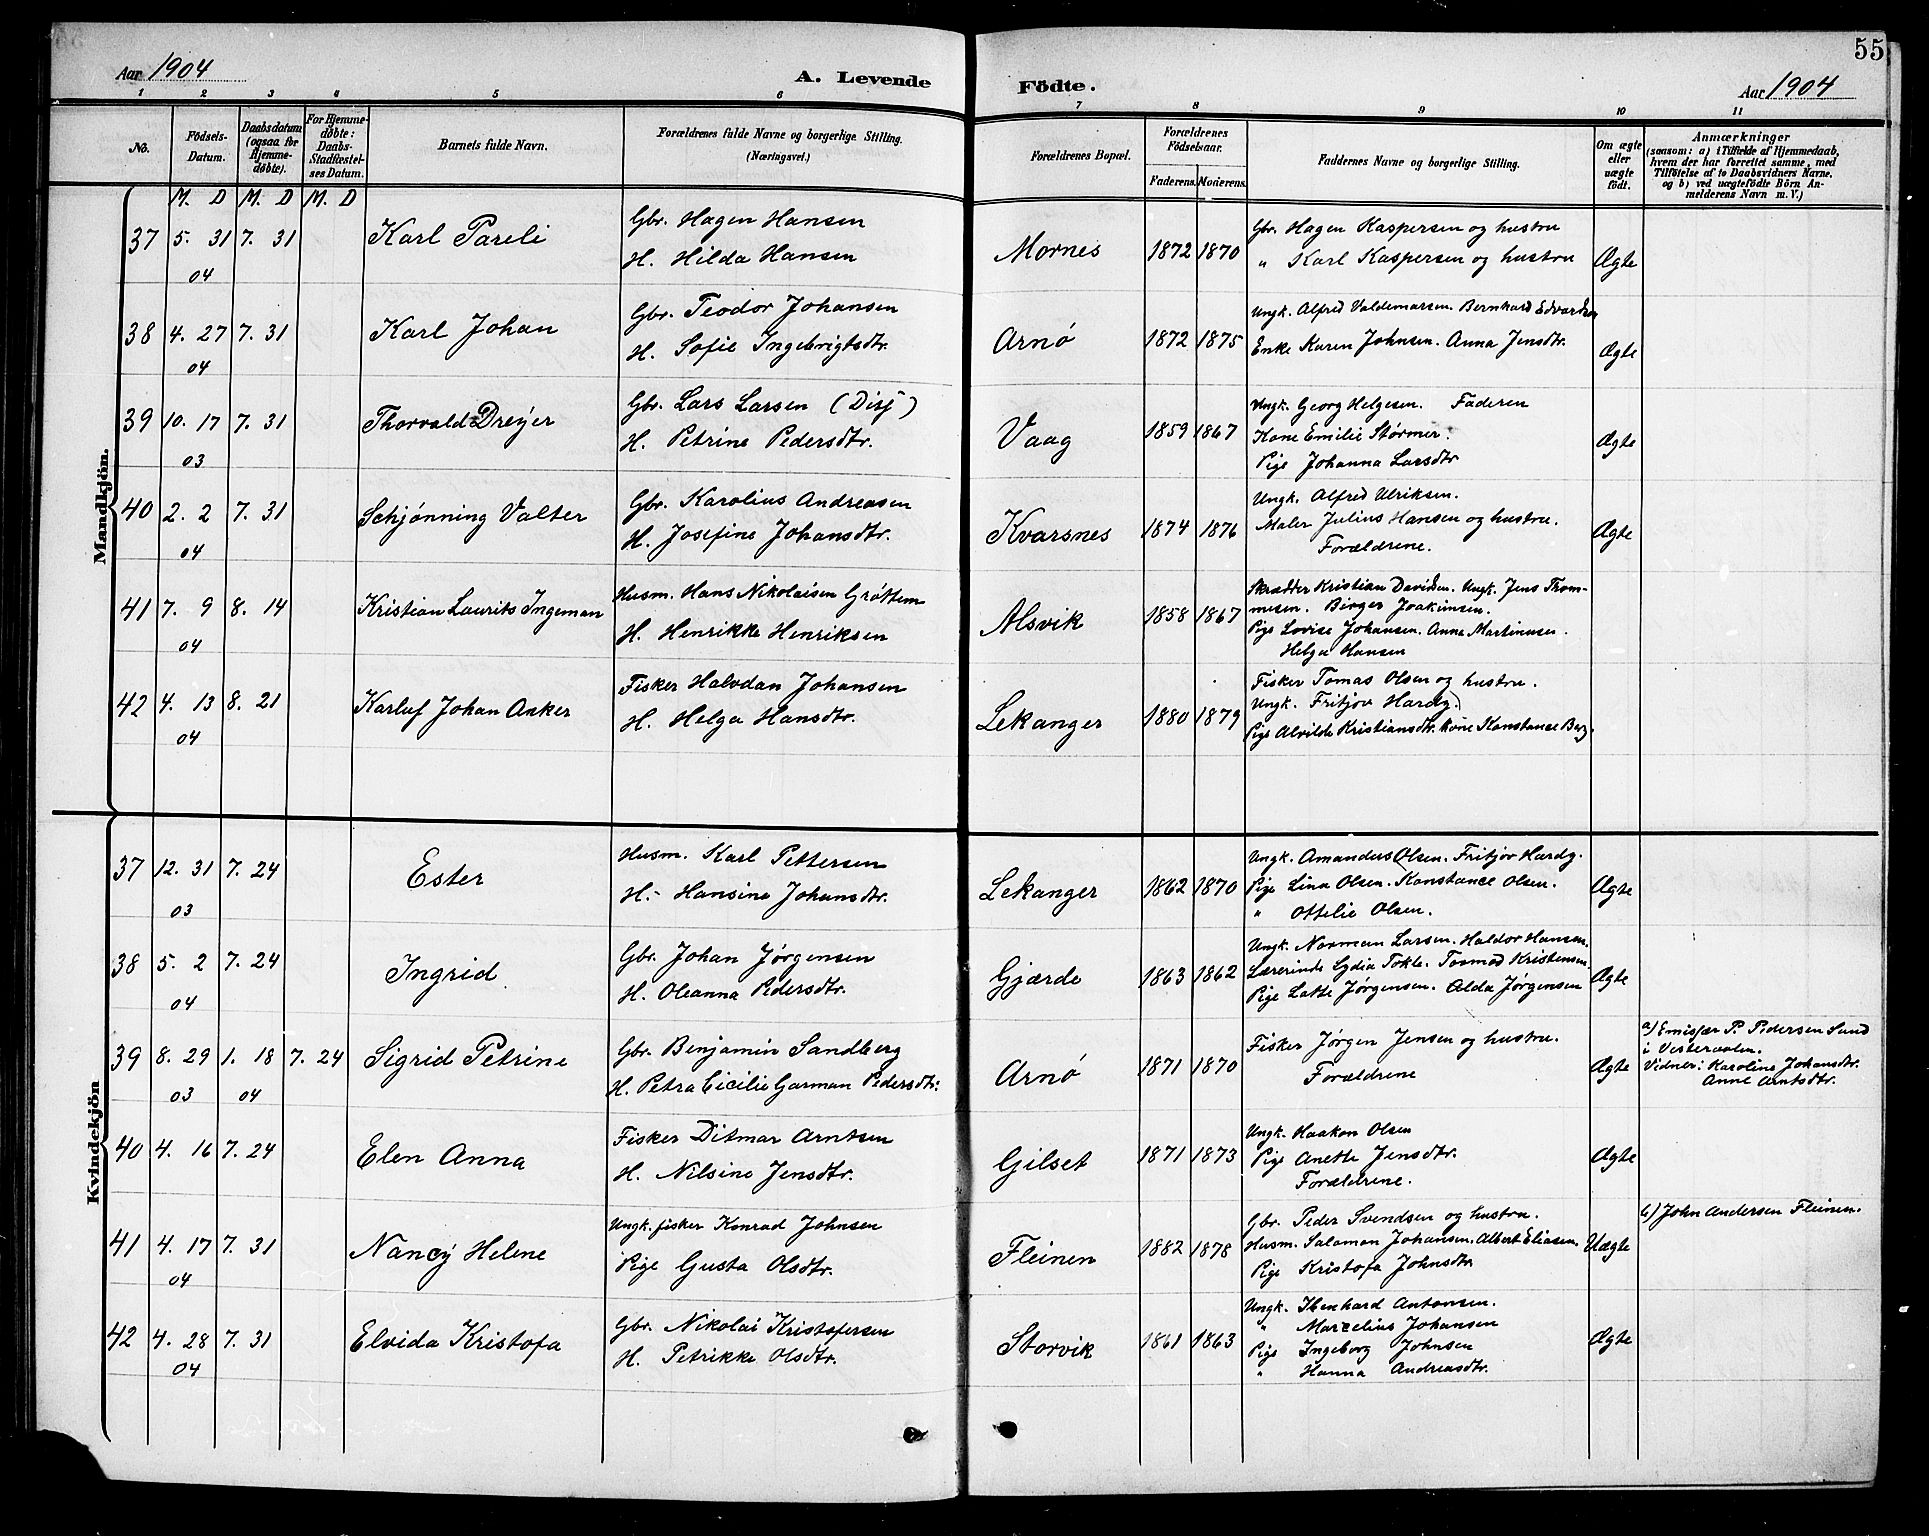 55
Aar 1904
A. Levende
Födte.
Aar 1904
1 2 3 4 5 6 7 8 9 10 11
No.
Födsels-Datum.
Daabsdatum (ogsaa for Hjemmedøbte).
For Hjemmedøbte: Daabs-Stadfæstelses Datum.
Barnets fulde Navn.
Forældrenes fulde Navne og borgerlige Stilling.
(Næringsvei.)
Forældrenes Bopæl.
Forældrenes Födselsaar.
Faderens. Moderens.
Faddernes Navne og borgerlige Stilling.
Om ægte eller uægte födt.
Anmærkninger
(saasom: a) i Tilfælde af Hjemmedaab,
hvem der har forrettet samme, med
Tilföielse af to Daabsvidners Navne,
og b) ved uægtefödte Börn An-
melderens Navn m. V.)
M. D M. D M. D
Mandkjön.
37 5. 31 7. 31 Karl Pareli Gbr. Hagen Hansen
04 H. Hilda Hansen
Mornes 1872 1870 Gbr. Hagen Kaspersen og hustru
" Karl Kaspersen og hustru Ægte
38 4. 27 7. 31 Karl Johan Gbr. Teodor Johansen
04 H. Sofie Ingebrigtsdtr.
Arnö 1872 1875 Ungk. Alfred Valdemarsen. Bernhard Edvardsen
Enke Karen Johnsen. Anna Jensdtr. Ægte
39 10. 17 7. 31 Thorvald Dreyer Gbr. Lars Larsen (Disj)
03 H. Petrine Pedersdtr.
Vaag 1859 1867 Ungk. Georg Helgesen. Faderen
Kone Emilie Størmer.
Pige Johanna Larsdtr Ægte
40 2. 2 7. 31 Schjønning Valter Gbr. Karolius Andreasen
04 H. Josefine Johansdtr.
Kvarsnes 1874 1876 Ungk. Alfred Ulriksen.
Maler Julius Hansen og hustru.
Forældrene. Ægte
41 7. 9 8. 14 Kristian Laurits Ingeman Husm. Hans Nikolaisen Grøttem
04 H. Henrikke Henriksen
Alsvik 1858 1867 Skrædder Kristian Davidsen. Ungk. Jens Thom-
mesen. Birger Joakimsen.
Pige Lovise Johansen. Anna Martinusen.
Helga Hansen
42 4. 13 8. 21 Karluf Johan Anker Fisker Halvdan Johansen
04 H. Helga Hansdtr.
Lekanger 1880 1879 Fisker Tomas Olsen og hustru.
Ungk. Fritjov Hardy.
Pige Alvilde Kristiansdtr. Kone Konstanse Berg.
Kvindekjön
37 12. 31 7. 24 Ester Husm. Karl Pettersen
03 H. Hansine Johansdtr.
Lekanger 1862 1870 Ungk. Amanders Olsen. Fritjov Hardy.
Pige Lina Olsen. Konstance Olsen.
" Ottelie Olsen. Ægte
38 5. 2 7. 24 Ingrid Gbr. Johan Jørgensen
04 H. Oleanna Pedersdtr.
Gjærde 1863 1862 Ungk. Norman Larsen. Haldor Hansen.
Lærerinde Lydia Tokle. Kristensen.
Pige Jørgensen. Alda Jørgensen Ægte
39 8. 29 1. 18 7. 24 Sigrid Petrine Gbr. Benjamin Sandberg
03 04 H. Petra Cicilie Garman Pedersdtr:
Arnö 1871 1870 Fisker Jørgen Jensen og hustru.
Forældrene Ægte
a) Emisfær P. Pedersen Sund
i Vesteraalen.
Vidner: Karoline Johansdtr.
Anne Arntsdtr.
40 4. 16 7. 24 Elen Anna Fisker Ditmar Arntsen
H. Nilsine Jensdtr.
Gilset 1871 1873 Ungk. Haakon Olsen
Pige Anette Jensdtr.
Forældrene. Ægte
41 4. 17 7. 31 Nancy Helene Ungk. fisker Konrad Johnsen
04 Pige Gusta Olsdtr.
Fleinen 1882 1878 Gbr. Peder Svendsen og hustru.
Husm. Salamon Johansen. Albert Eliasen.
Pige Kristofa Johnsdtr Uægte
b) John Andersen Fleinen.
42 4. 28 7. 31 Elvida Kristofa Gbr. Nikolai Kristofersen
04 H. Petrikke Olsdtr.
Storvik 1861 1863 Ungk. Antonsen.
" Marcelius Johansen
Pige Ingeborg Johnsen
" Hanna Andreasdtr. Ægte